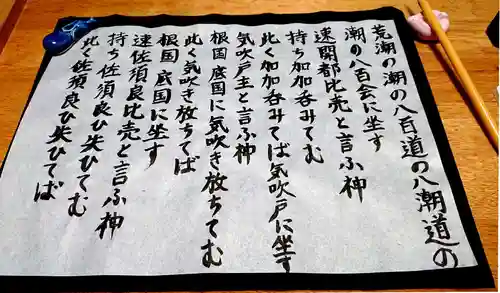 荒潮の潮の八百道の八潮道の
潮の八百会に坐す
速開都比売と言ふ神
持ち加加呑みてむ
此く加加呑みてば気吹戸に坐す
気吹戸主と言ふ神
根国底国に気吹き放ちてむ
此く気吹き放ちてば
根国 底国に坐す
速佐須良比売と言ふ神
持ち佐須良ひ失ひてむ
此く佐須良ひ失ひてば